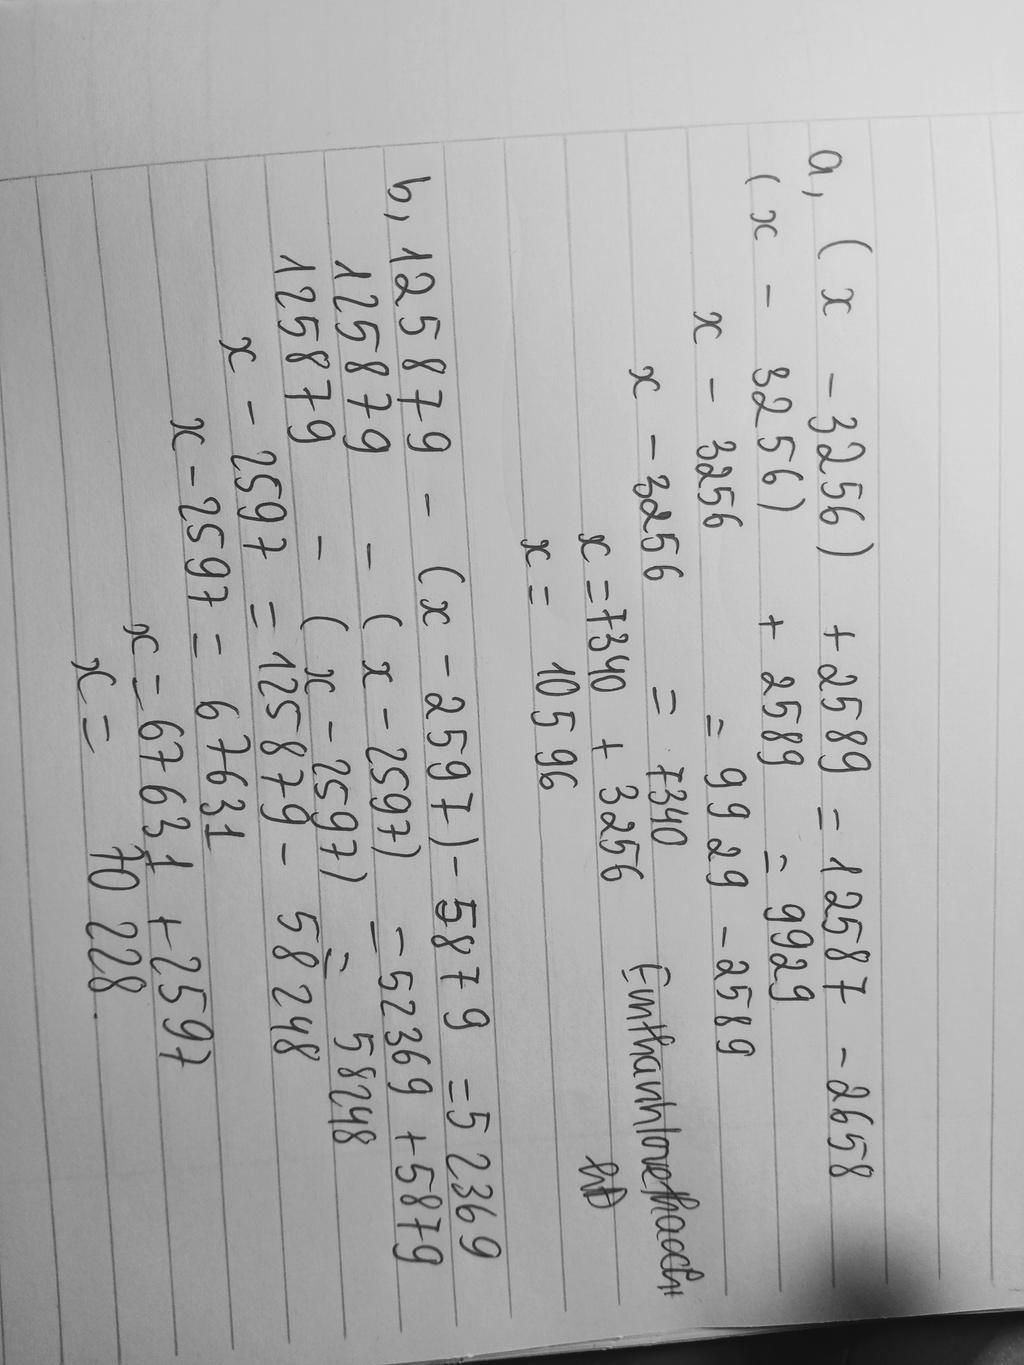 a, (x - 3256) + 2589 = 12587 - 2658
(x - 3256) + 2589 = 9929
x - 3256 = 9929 - 2589
x - 3256 = 7340
x = 7340 + 3256
x = 10596
b, 125879 - (x - 2597) - 5879 = 52369
125879 - (x - 2597) = 52369 + 5879
125879 - (x - 2597) = 58248
x - 2597 = 125879 - 58248
x - 2597 = 67631
x = 67631 + 2597
x = 70228.